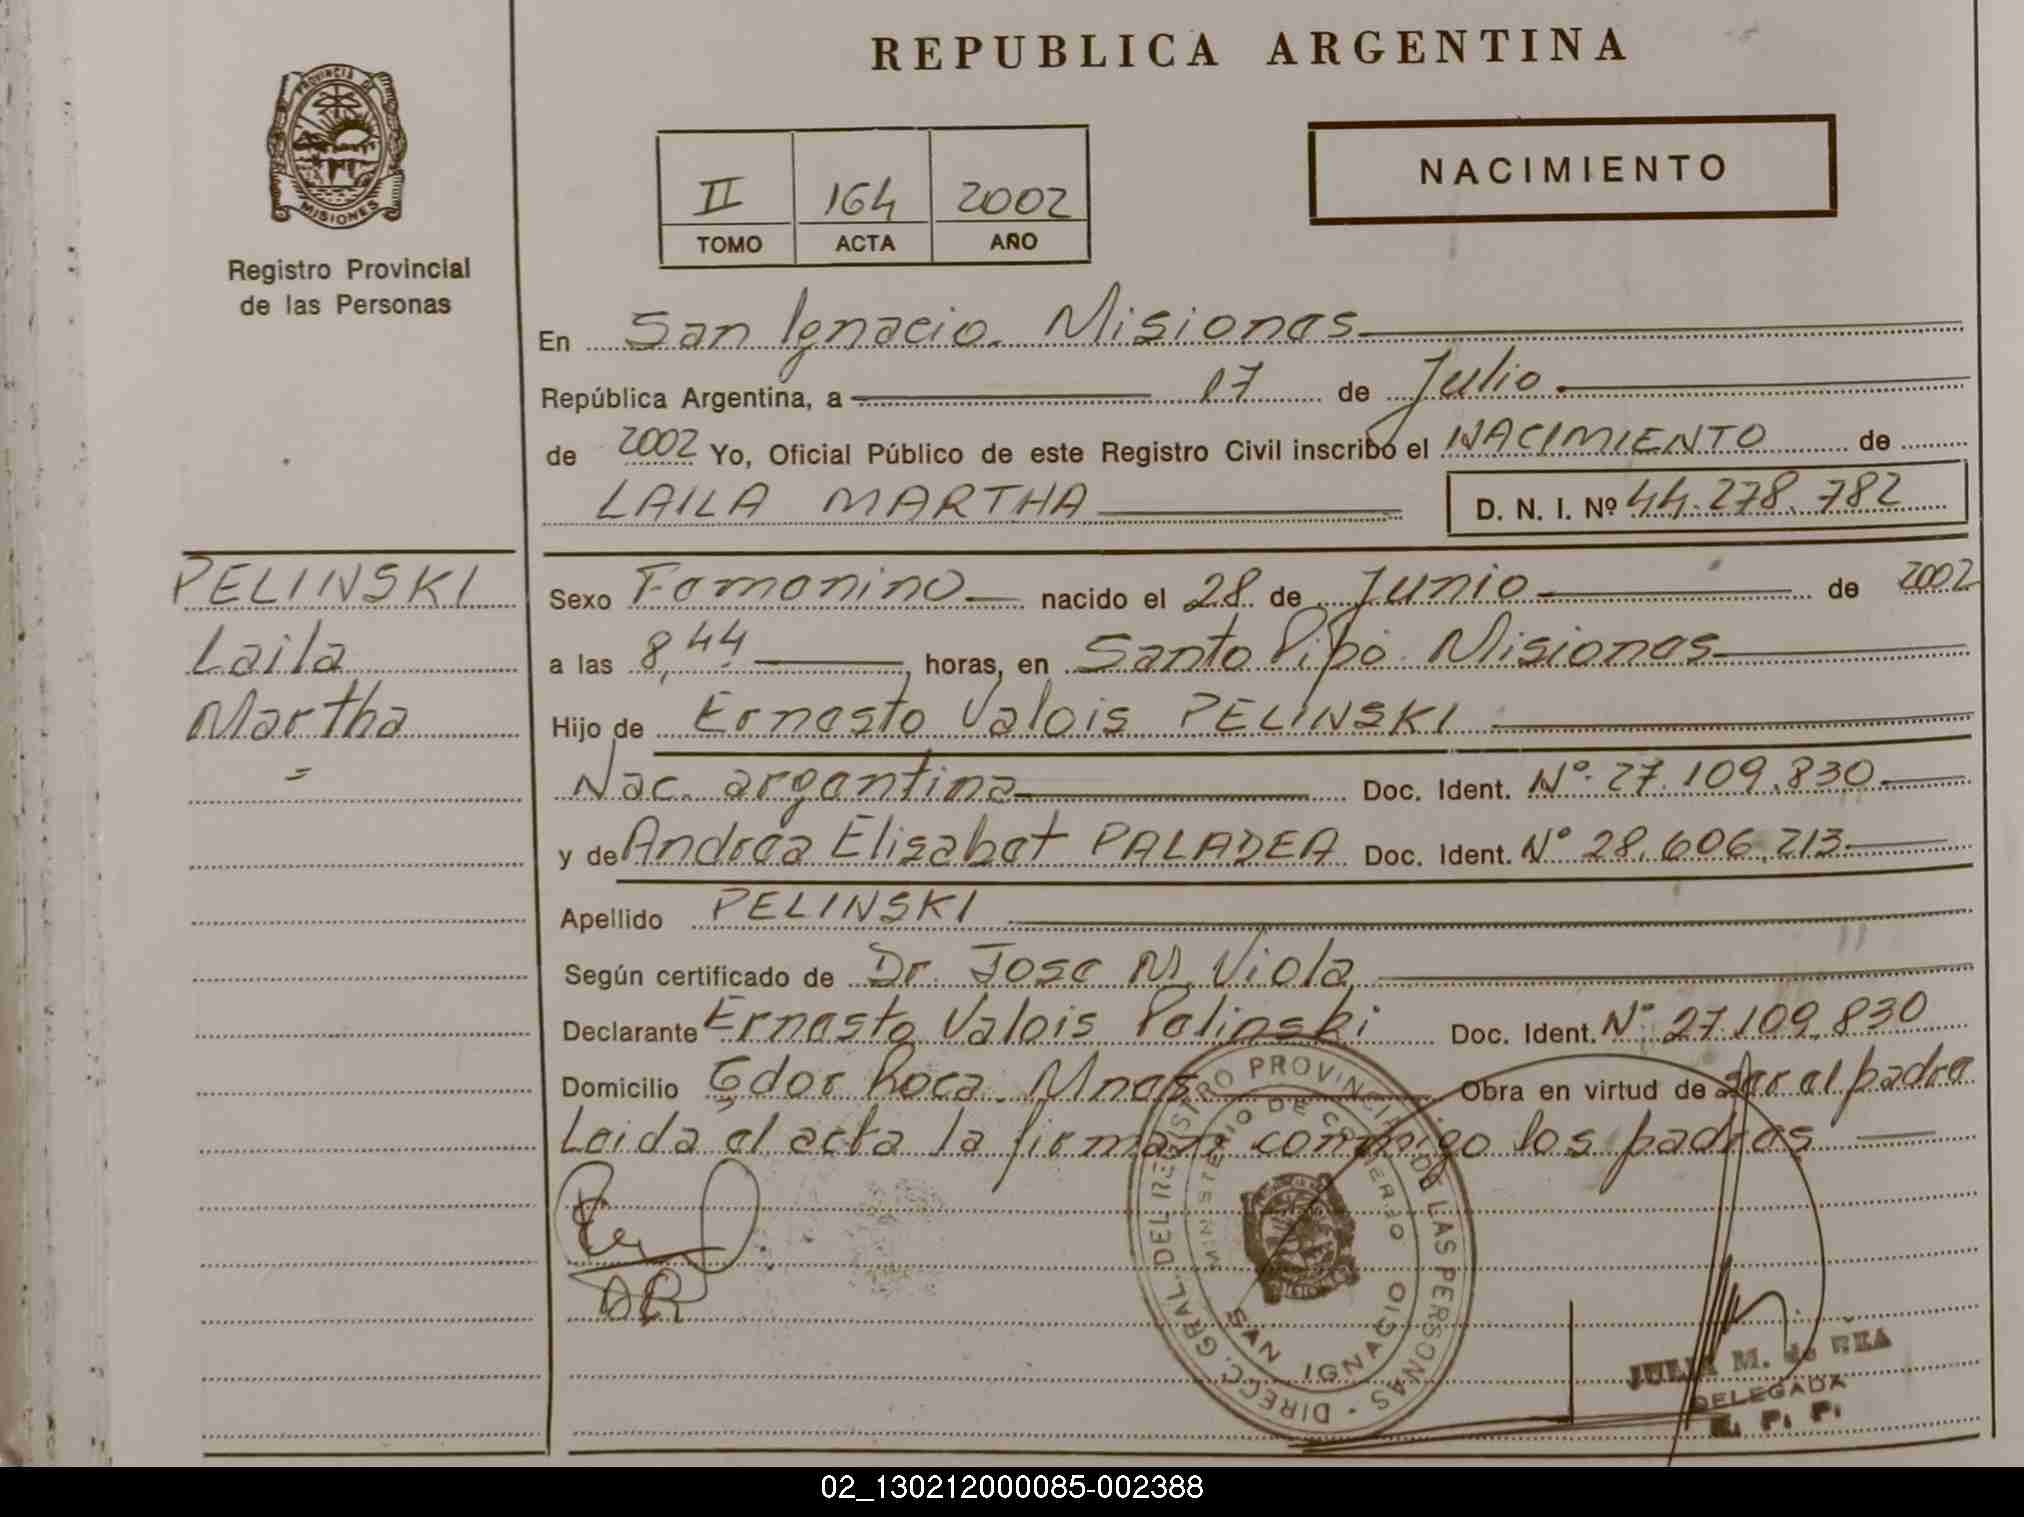 REPUBLICA ARGENTINA
PROVINCIA DE
MISIONES
Registro Provincial
de las Personas
II 164 2002
TOMO ACTA AÑO
NACIMIENTO
En San Ignacio. Misiones
República Argentina, a 17 de Julio.
de 2002 Yo, Oficial Público de este Registro Civil inscribo el NACIMIENTO de
LAILA MARTHA D. N. I. Nº 44.278.782
PELINSKI
Laila
Martha
Sexo Femenino nacido el 28 de Junio de 2002
a las 8,44 horas, en Santo Pipó. Misiones
Hijo de Ernesto Valois PELINSKI
Nac. argentina Doc. Ident. Nº. 27.109.830
y de Andrea Elisabet PALADEA Doc. Ident. Nº 28.606.213
Apellido PELINSKI
Según certificado de Dr. Jose M. Viola
Declarante Ernesto Valois Pelinski Doc. Ident. Nº 27.109.830
Domicilio Gdor Roca. Mnes Obra en virtud de ser el padre
Leida el acta la firman conmigo los padres
DIRECC. GRAL. DEL REGISTRO PROVINCIAL DE LAS PERSONAS
MINISTERIO DE COMERIO
SAN IGNACIO
M. de
DELEGADA
R. P. P.
02_130212000085-002388